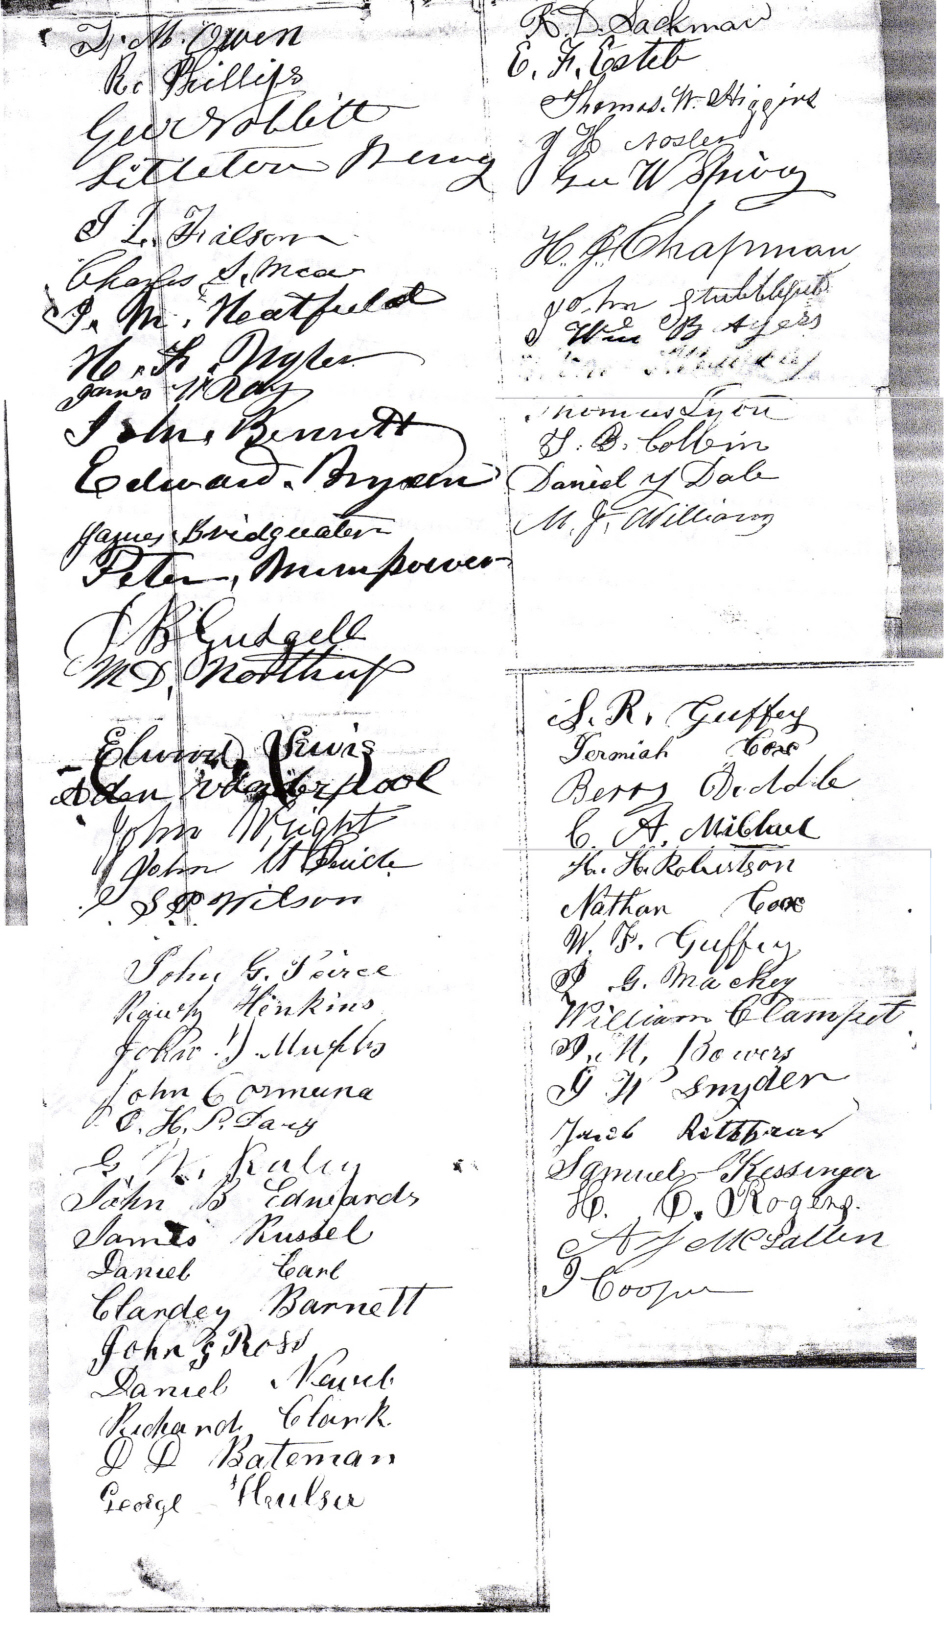 T. M. Owen
R. Phillips
Geo Noblitt
Littleton
J L. Filson
Charles S.
J. M. Heatfield
H. F.
James W Ray
John Bennett
Edward Bryson
James Bridgwater
Peter Mumpower
J B Gudgell
M D. Northup
Lewis
Aden Vanderpool
John Wright
John
S P Wilson
John G. Peirce
Henkins
John D Murphy
John
O. H. P. Davy
G. W.
John B Edwards
James Russel
Daniel Carl
Clardey Barnett
John Ross
Daniel
Richard Clark
D D Bateman
George Hulser
R. D. Sackman
E. F. Esteb
Thomas. W. Higgins
J H Nosler
Geo W Spivey
H. J. Chapman
John Stubblefield
Wm B Ayers
Thomas Lyon
T. B. Colvin
Daniel Y Dale
M. J. Williams
S. R. Guffey
Jermiah Cox
Berry Diddle
C. A. Michael
H. H. Robertson
Nathan Cox
W. F. Guffey
G. Mackey
William Clampet
N. Bowers
G W Snyder
Jacob
Samuel Kessinger
H. D. Rogers.
A J McCallen
J Cooper